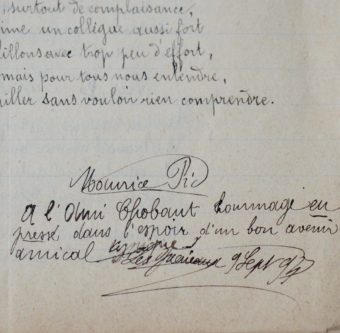 surtout de complaisance,
ime un collègue aussi fort
illons avec trop peu d'effort,
mais pour tous nous entendre,
iller sans vouloir rien comprendre.
Maurice Pic
A l'Ami Chobaut hommage em
pressé dans l'espoir d'un bon avenir
amical
9 Sept